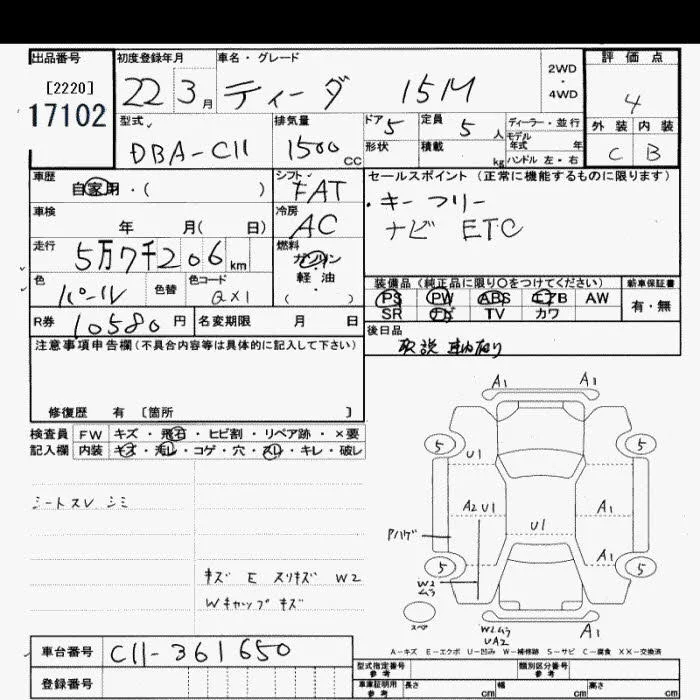 出品番号
[2220]
17102
初度登録年月
22 3月
車名・グレード
ティーダ 15M
2WD
・
4WD
評価点
4
外装 内装
C B
型式
DBA-C11
排気量
1500 CC
ドア 5
定員 5 人
ディーラー・並行
モデル
年式 年
形状
積載 kg
ハンドル 左・右
車歴
自家用・( )
シフト
FAT
セールスポイント (正常に機能するものに限ります)
・キーフリー
ナビ ETC
車検
年 月( 日)
冷房
AC
走行
5万7千206km
燃料
ガソリン
軽・油
( )
色
パール
色替
色コード
QX1
装備品 (純正品に限り○をつけてください)
新車保証書
PS PW ABS エアB AW
SR ナビ TV カワ
有・無
R券 10580円
名変期限 月 日
後日品
取説
注意事項申告欄(不具合内容等は具体的に記入して下さい)
修復歴 有 [箇所 ]
検査員
記入欄
FW キズ・飛石・ヒビ割・リペア跡・×要
内装 キズ・汚レ・コゲ・穴・スレ・キレ・破レ
シートスレ シミ
キズ E スリキズ W2
Wキャップキズ
A1 A1
5 5
U1
A2 U1 A1
U1
Pハゲ
A1
5 5
W2
ムラ
スペア
W2ムラ
UA2
A1
A-キズ E-エクボ U-凹み W-補修跡 S-サビ C-腐食 XX-交換済
車台番号
C11-361650
登録番号
型式指定番号
参考
類別区分番号
参考
車庫証明用
参考
長さ cm
幅 cm
高さ cm